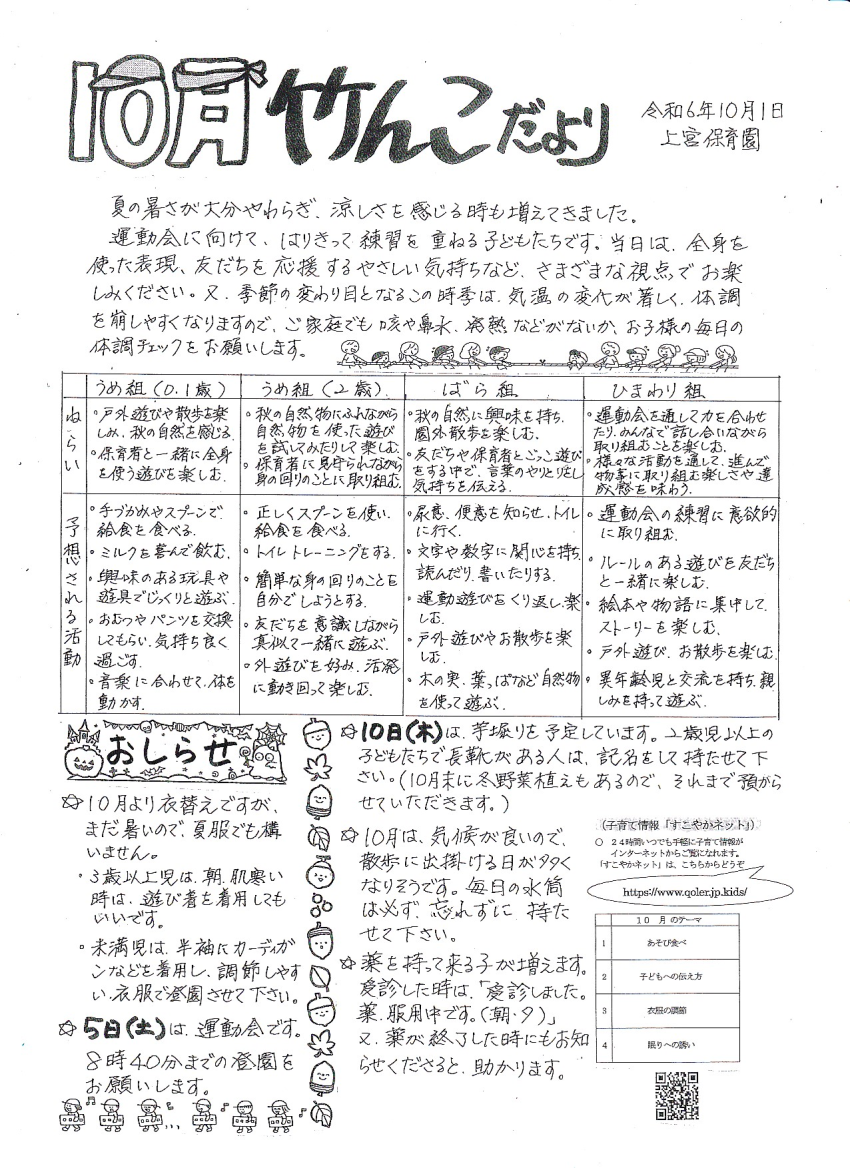 10月 竹んこだより
令和6年10月1日
上宮保育園
夏の暑さが大分やわらぎ、涼しさを感じる時も増えてきました。
運動会に向けて、はりきって練習を重ねる子どもたちです。当日は、全身を
使った表現、友だちを応援するやさしい気持ちなど、さまざまな視点でお楽
しみください。又、季節の変わり目となるこの時季は、気温の変化が著しく、体調
を崩しやすくなりますので、ご家庭でも咳や鼻水、発熱などがないか、お子様の毎日の
体調チェックをお願いします。
うめ組(0.1歳)
うめ組(2歳)
ばら組
ひまわり組
ねらい
・戸外遊びや散歩を楽
しみ、秋の自然を感じる。
・保育者と一緒に全身
を使う遊びを楽しむ。
・秋の自然物にふれながら
自然物を使った遊び
を試してみたりして楽しむ。
・保育者に見守られながら
身の回りのことに取り組む。
・秋の自然に興味を持ち、
園外散歩を楽しむ。
・友だちや保育者とごっこ遊び
をする中で、言葉のやりとりをし
気持ちを伝える。
・運動会を通して力を合わせ
たり、みんなで話し合いながら
取り組むことを楽しむ。
・様々な活動を通して、進んで
物事に取り組む楽しさや達
成感を味わう。
予想される活動
・手づかみやスプーンで
給食を食べる。
・ミルクを喜んで飲む。
・興味のある玩具や
遊具でじっくりと遊ぶ。
・おむつやパンツを交換
してもらい、気持ち良く
過ごす。
・音楽に合わせて、体を
動かす。
・正しくスプーンを使い、
給食を食べる。
・トイレトレーニングをする。
・簡単な身の回りのことを
自分でしようとする。
・友だちを意識しながら
真似て一緒に遊ぶ。
・外遊びを好み、活発
に動き回って楽しむ。
・尿意、便意を知らせ、トイレ
に行く。
・文字や数字に関心を持ち、
読んだり、書いたりする。
・運動遊びをくり返し楽
しむ。
・戸外遊びやお散歩を楽
しむ。
・木の実、葉っぱなど自然物
を使って遊ぶ。
・運動会の練習に意欲的
に取り組む。
・ルールのある遊びを友だち
と一緒に楽しむ。
・絵本や物語に集中して、
ストーリーを楽しむ。
・戸外遊び、お散歩を楽しむ。
・異年齢児と交流を持ち、親
しみを持って遊ぶ。
おしらせ
☆10月より衣替えですが、
まだ暑いので、夏服でも構
いません。
・3歳以上児は、朝、肌寒い
時は、遊び着を着用しても
いいです。
・未満児は、半袖にカーディガ
ンなどを着用し、調節しやす
い、衣服で登園させて下さい。
☆5日(土)は、運動会です。
8時40分までの登園を
お願いします。
☆10日(木)は、芋堀りを予定しています。2歳児以上の
子どもたちで長靴がある人は、記名をして持たせて下
さい。(10月末に冬野菜植えもあるので、それまで預から
せていただきます。)
☆10月は、気候が良いので、
散歩に出掛ける日が多く
なりそうです。毎日の水筒
は必ず、忘れずに持た
せて下さい。
☆薬を持って来る子が増えます。
受診した時は、「受診しました。
薬、服用中です。(朝・夕)」
又、薬が終了した時にもお知
らせくださると、助かります。
(子育て情報「すこやかネット」)
○ 24時間いつでも手軽に子育て情報が
インターネットからご覧になれます。
「すこやかネット」は、こちらからどうぞ
https://www.qoler.jp.kids/
10 月 のテーマ
1 あそび食べ
2 子どもへの伝え方
3 衣服の調節
4 眠りへの誘い